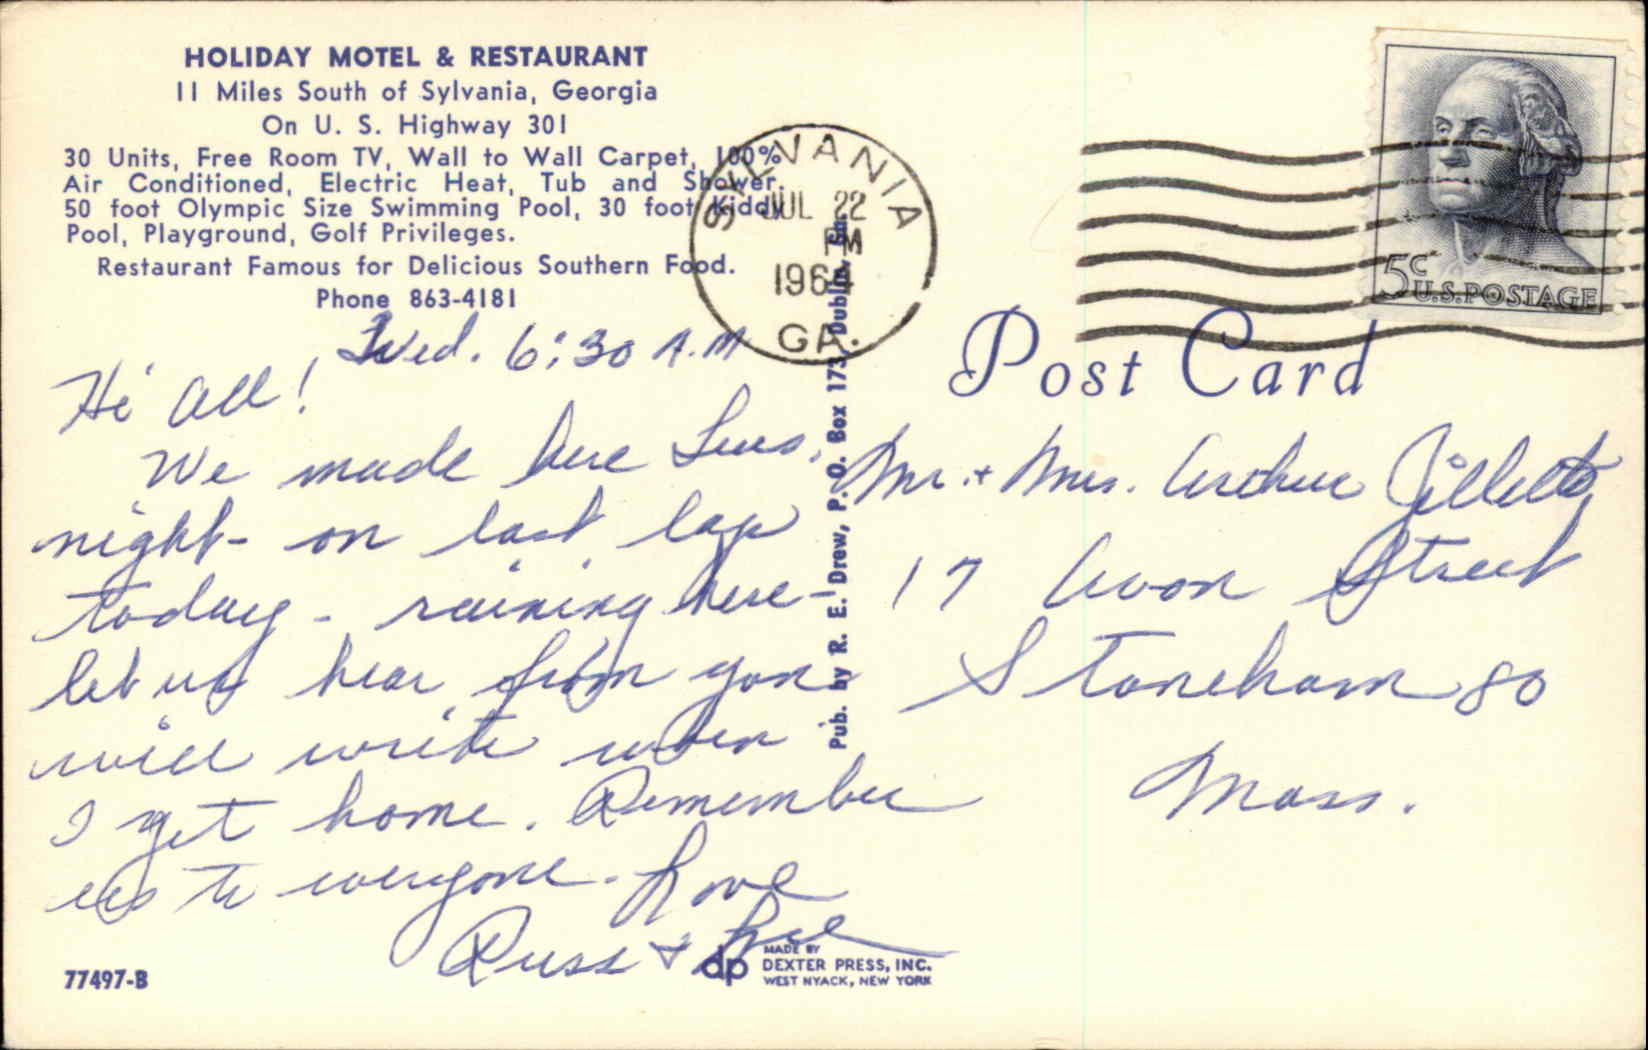 HOLIDAY MOTEL & RESTAURANT
11 Miles South of Sylvania, Georgia
On U. S. Highway 301
30 Units, Free Room TV, Wall to Wall Carpet, 100%
Air Conditioned, Electric Heat, Tub and Shower.
50 foot Olympic Size Swimming Pool, 30 foot Kiddy
Pool, Playground, Golf Privileges.
Restaurant Famous for Delicious Southern Food.
Phone 863-4181
Wed. 6:30 A.M
Hi all!
We made here Tues.
night - on last lap
today - raining here -
let us hear from you
will write when
I get home. Remember
us to everyone. Love
Russ &
77497-B
dp
MADE BY
DEXTER PRESS, INC.
WEST NYACK, NEW YORK
Pub. by R. E. Drew, P. O. Box 173, Dublin, Ga.
SYLVANIA
JUL 22
PM
1964
GA.
5c
U.S. POSTAGE
Post Card
Mr. + Mrs. Arthur Gillette
17 Avon Street
Stoneham 80
Mass.